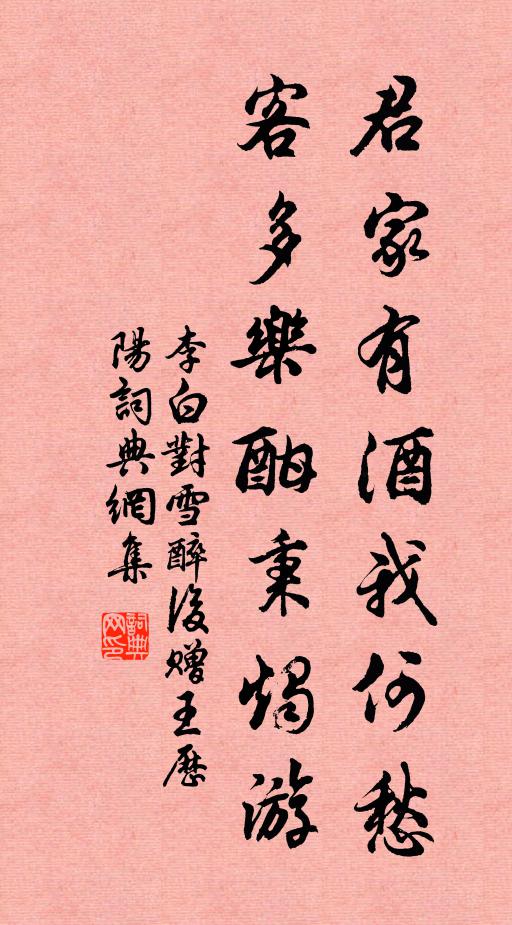 君家有酒我何愁
客多樂酣秉燭游
李白對雪醉後贈王歷
陽詞典網集
詞典
网印